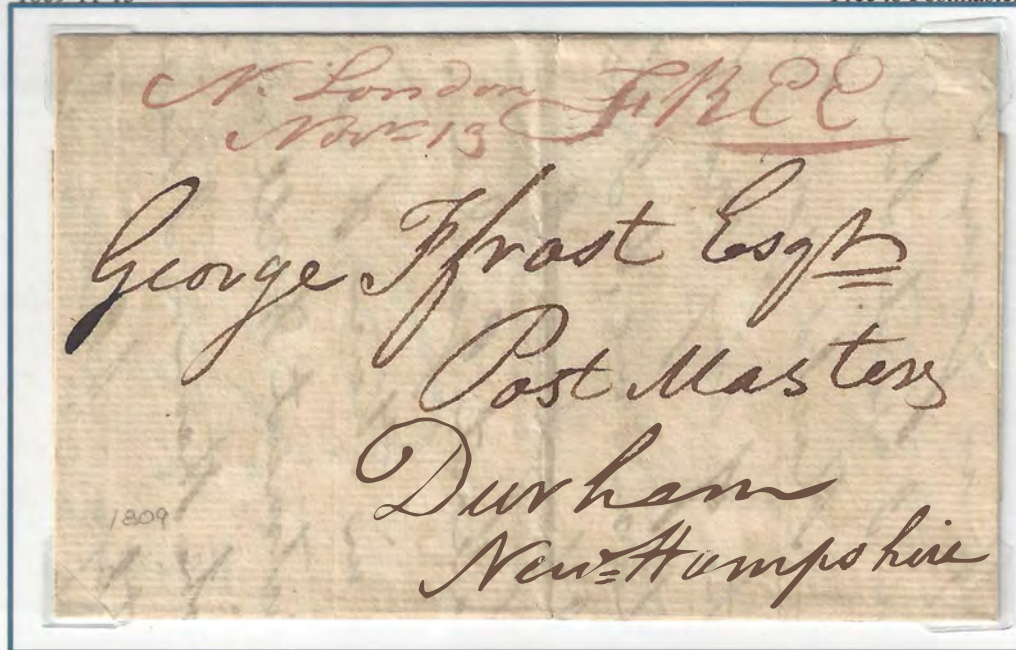 N. London FREE
Novr 13
George Ffrost Esqr
Post Master
Durham
New=Hampshire
1809